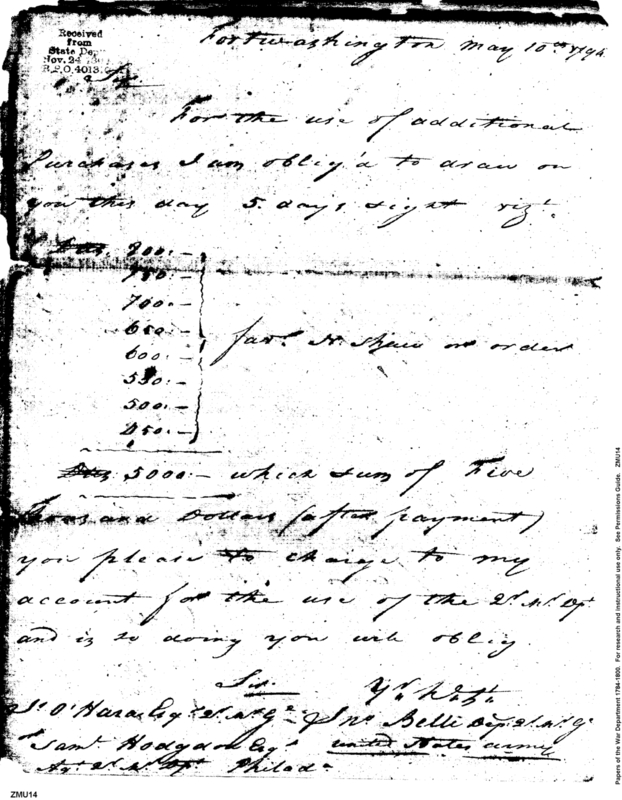 Received
from
State Dep
Nov. 24
R.P.O. 4013
Fortwashington May 10th 1794
Sir
For the use of additional
Purchases I am oblig'd to draw on
you this day 5. days sight vizt.
Dlls. 900.-
750.-
700.-
650.-
600.-
550.-
500.-
450.-
favr. or order
Dlls. 5000.- which sum of Five
Thousand Dollars (after payment)
you please to charge to my
account for the use of the Qr. Mr. Dpt.
and in so doing you will oblig
Sir.
Yr.
Js. O'Hara Esqr. Qr. Mr. Gl.
Jno. Belli Dep. Qr. Mr. G.
or Saml. Hodgdon Esqr.
United States army
Agt. Qr. Mr. Dpt. Philada.
ZMU14
Papers of the War Department 1784-1800. For research and instructional use only. See Permissions Guide. ZMU14